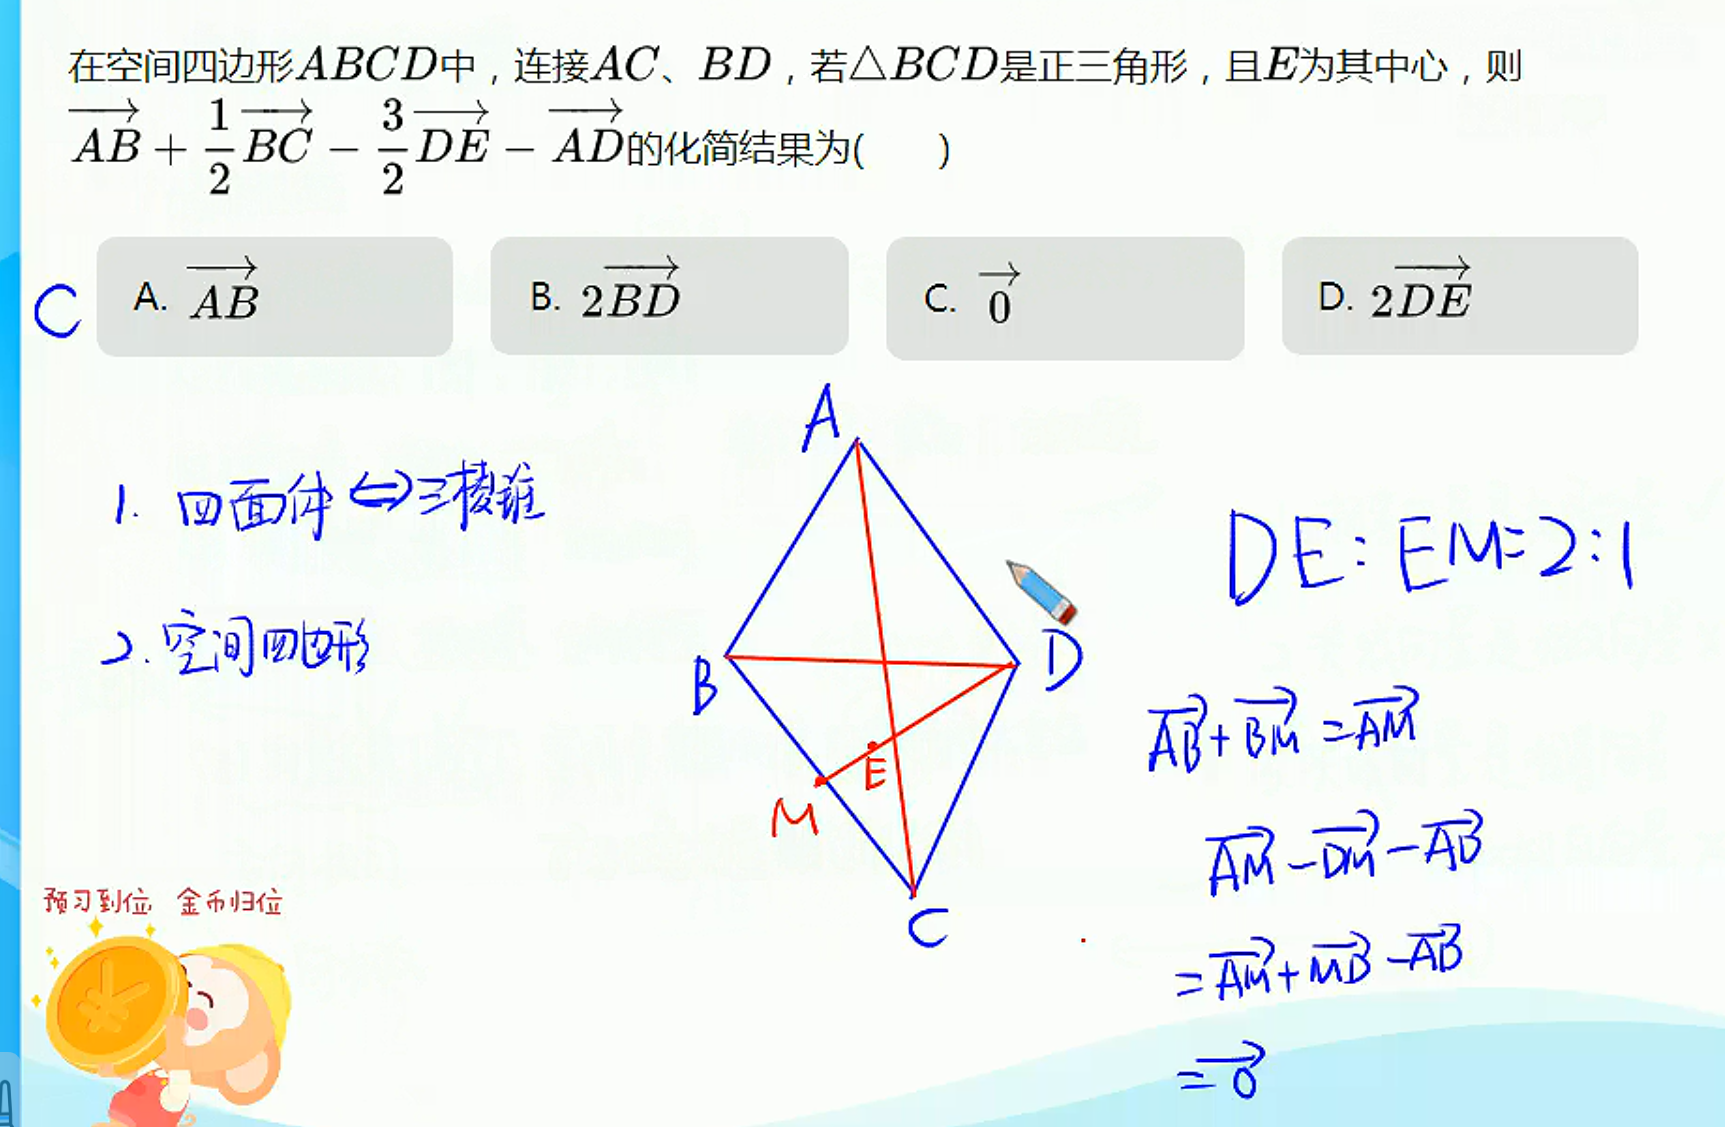 在空间四边形ABCD中，连接AC、BD，若△BCD是正三角形，且E为其中心，则
$\overrightarrow{AB}+\frac{1}{2}\overrightarrow{BC}-\frac{3}{2}\overrightarrow{DE}-\overrightarrow{AD}$的化简结果为(　　)
C
A. $\overrightarrow{AB}$
B. $2\overrightarrow{BD}$
C. $\overrightarrow{0}$
D. $2\overrightarrow{DE}$
1. 四面体⇔三棱锥
2. 空间四边形
A
B
D
E
M
C
DE:EM=2:1
$\overrightarrow{AB}+\overrightarrow{BM}=\overrightarrow{AM}$
$\overrightarrow{AM}-\overrightarrow{DM}-\overrightarrow{AD}$
$=\overrightarrow{AM}+\overrightarrow{MD}-\overrightarrow{AD}$
$=\overrightarrow{0}$
预习到位 金币归位